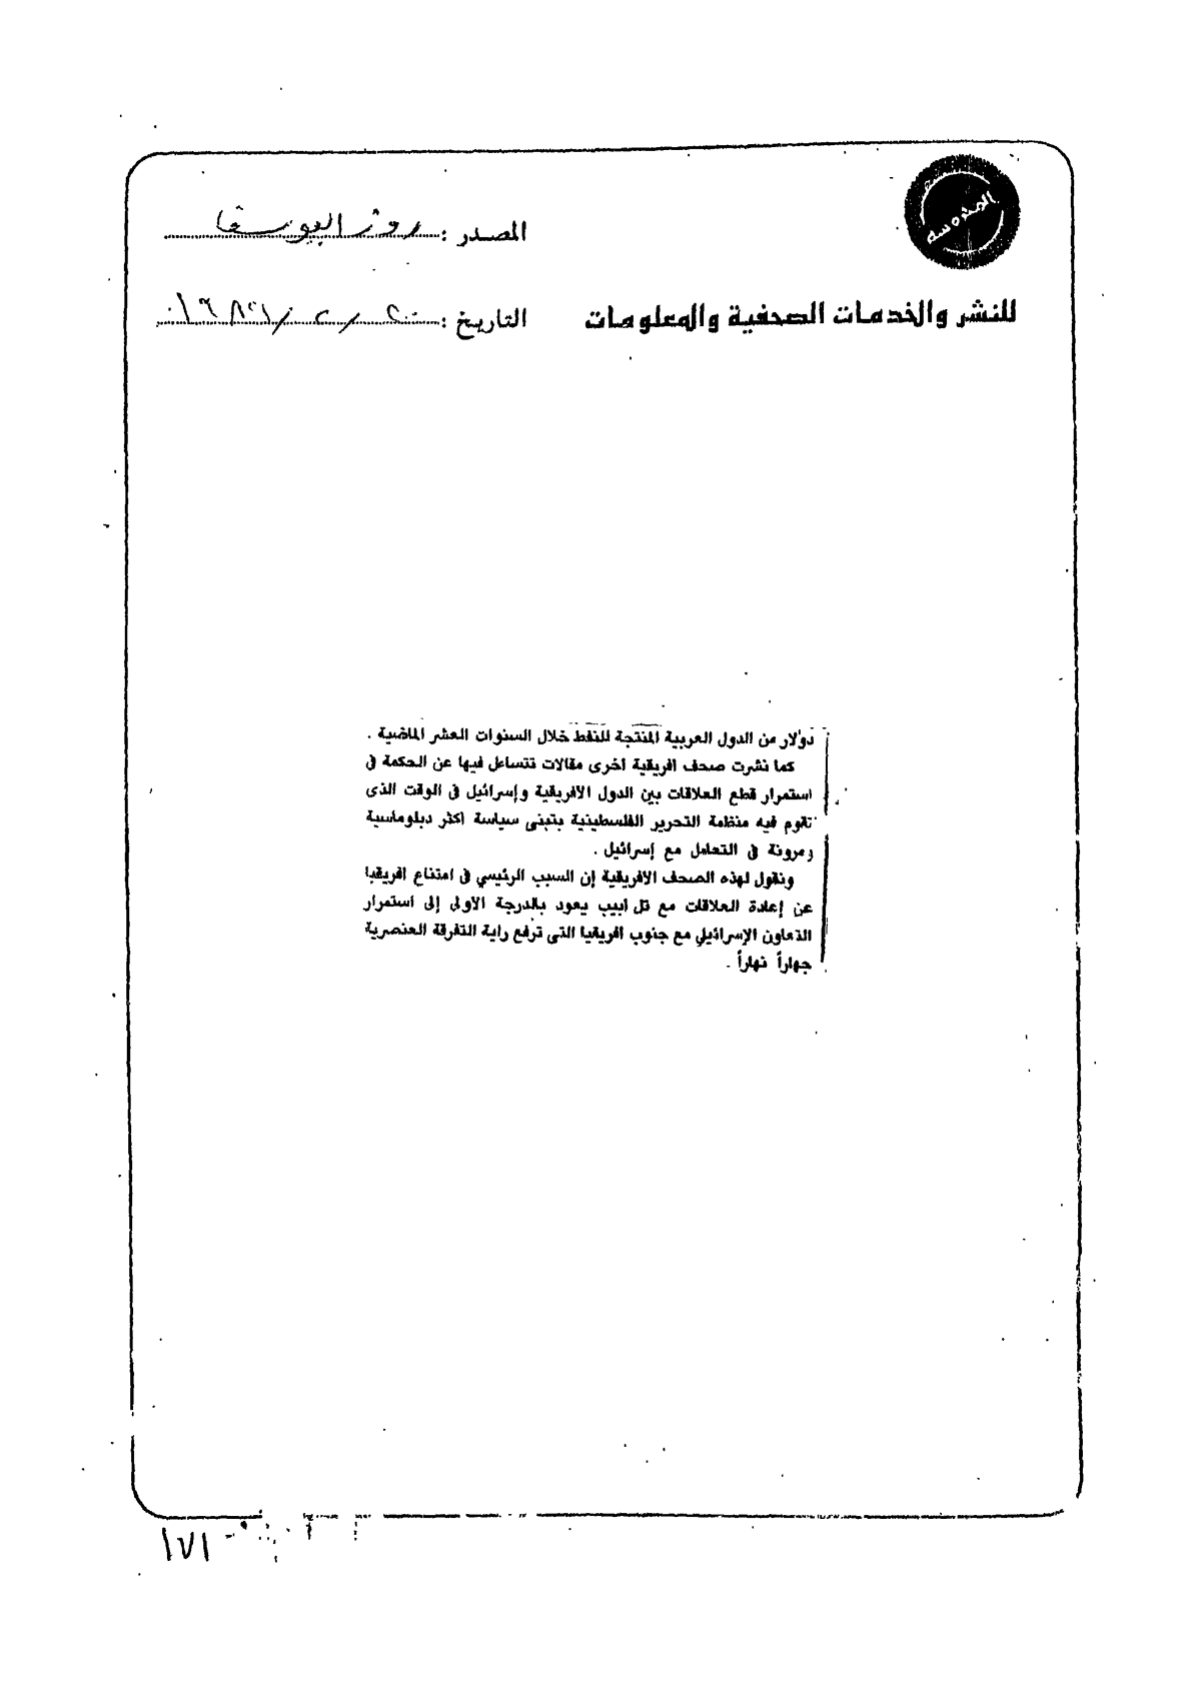 المحروسة
المصدر : روز اليوسف
للنشر والخدمات الصحفية والمعلومات
التاريخ : ٢٠ / ٢ /
دولار من الدول العربية المنتجة للنفط خلال السنوات العشر الماضية .
كما نشرت صحف افريقية اخرى مقالات تتساءل فيها عن الحكمة فى
استمرار قطع العلاقات بين الدول الافريقية وإسرائيل فى الوقت الذى
تقوم فيه منظمة التحرير الفلسطينية بتبنى سياسة اكثر دبلوماسية
ومرونة فى التعامل مع إسرائيل .
ونقول لهذه الصحف الافريقية إن السبب الرئيسي فى امتناع افريقيا
عن إعادة العلاقات مع تل أبيب يعود بالدرجة الاولى إلى استمرار
التعاون الإسرائيلي مع جنوب افريقيا التى ترفع راية التفرقة العنصرية
جهاراً نهاراً .
١٧١